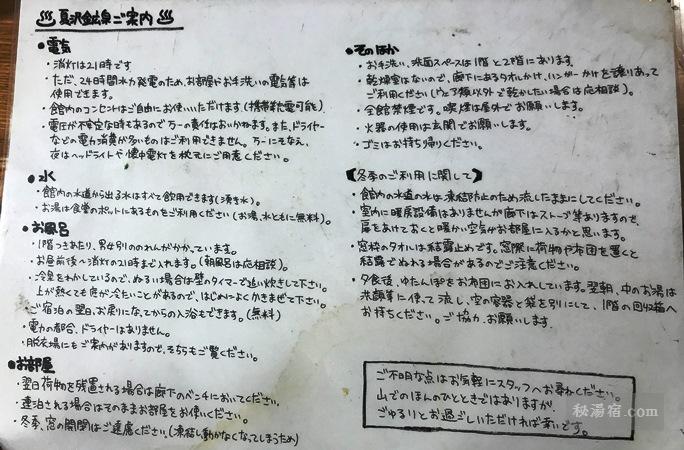 ♨夏沢鉱泉ご案内♨
●電気
・消灯は21時です
・ただ、24時間水力発電のため、お部屋やお手洗いの電気等は
使用できます。
・館内のコンセントはご自由にお使いいただけます(携帯充電可能)
・電圧が不安定な時もあるので万一の責任はおいかねます。また、ドライヤー
などの電力消費が多いものはご利用できません。万一にそなえ、
夜はヘッドライトや懐中電灯を枕元にご用意ください。
●水
・館内の水道から出る水はすべて飲用できます(湧き水)。
・お湯は食堂のポットにあるものをご利用ください(お湯、水ともに無料)。
●お風呂
・1階つきあたり、男女別ののれんがかかっています。
・お昼前後~消灯の21時まで入れます。(朝風呂は応相談)。
・冷泉をわかしているので、ぬるい場合は壁のタイマーで追い炊きして下さい。
上が熱くても底が冷たいことがあるので、はじめによくかきまぜて下さい。
・ご宿泊の翌日、お戻りになってからの入浴もできます。(無料)
・電力の都合、ドライヤーはありません。
・脱衣場にもご案内がありますので、そちらもご覧ください。
●お部屋
・翌日荷物を残置される場合は廊下のベンチにおいてください。
・連泊される場合はそのままお部屋をお使いください。
・冬季、窓の開閉はご遠慮ください。(凍結し動かなくなってしまうため)
●そのほか
・お手洗い、洗面スペースは1階と2階にあります。
・乾燥室はないので、廊下にあるタオルかけ、ハンガーかけを譲りあって
ご利用ください(ウェア類以外で乾かしたい場合は応相談)。
・全館禁煙です。喫煙は屋外でお願いします。
・火器の使用は玄関でお願いします。
・ゴミはお持ち帰りください。
【冬季のご利用に関して】
・館内の水道の水は凍結防止のため流したままにしてください。
・室内に暖房設備はありませんが廊下はストーブ等ありますので、
扉をあけておくと暖かい空気がお部屋に入るかと思います。
・窓枠のタオルは結露止めです。窓際に荷物や布団を置くと
結露でぬれる場合があるのでご注意ください。
・夕食後、ゆたんぽをお布団にお入れしています。翌朝、中のお湯は
洗顔等に使って流し、空の容器と袋を別にして、1階の回収箱へ
お持ちください。ご協力、お願いします.
ご不明な点はお気軽にスタッフへお尋ねください。
山でのほんのひとときではありますが、
ごゆるりとお過ごしいただければ幸いです。
秘湯宿.com